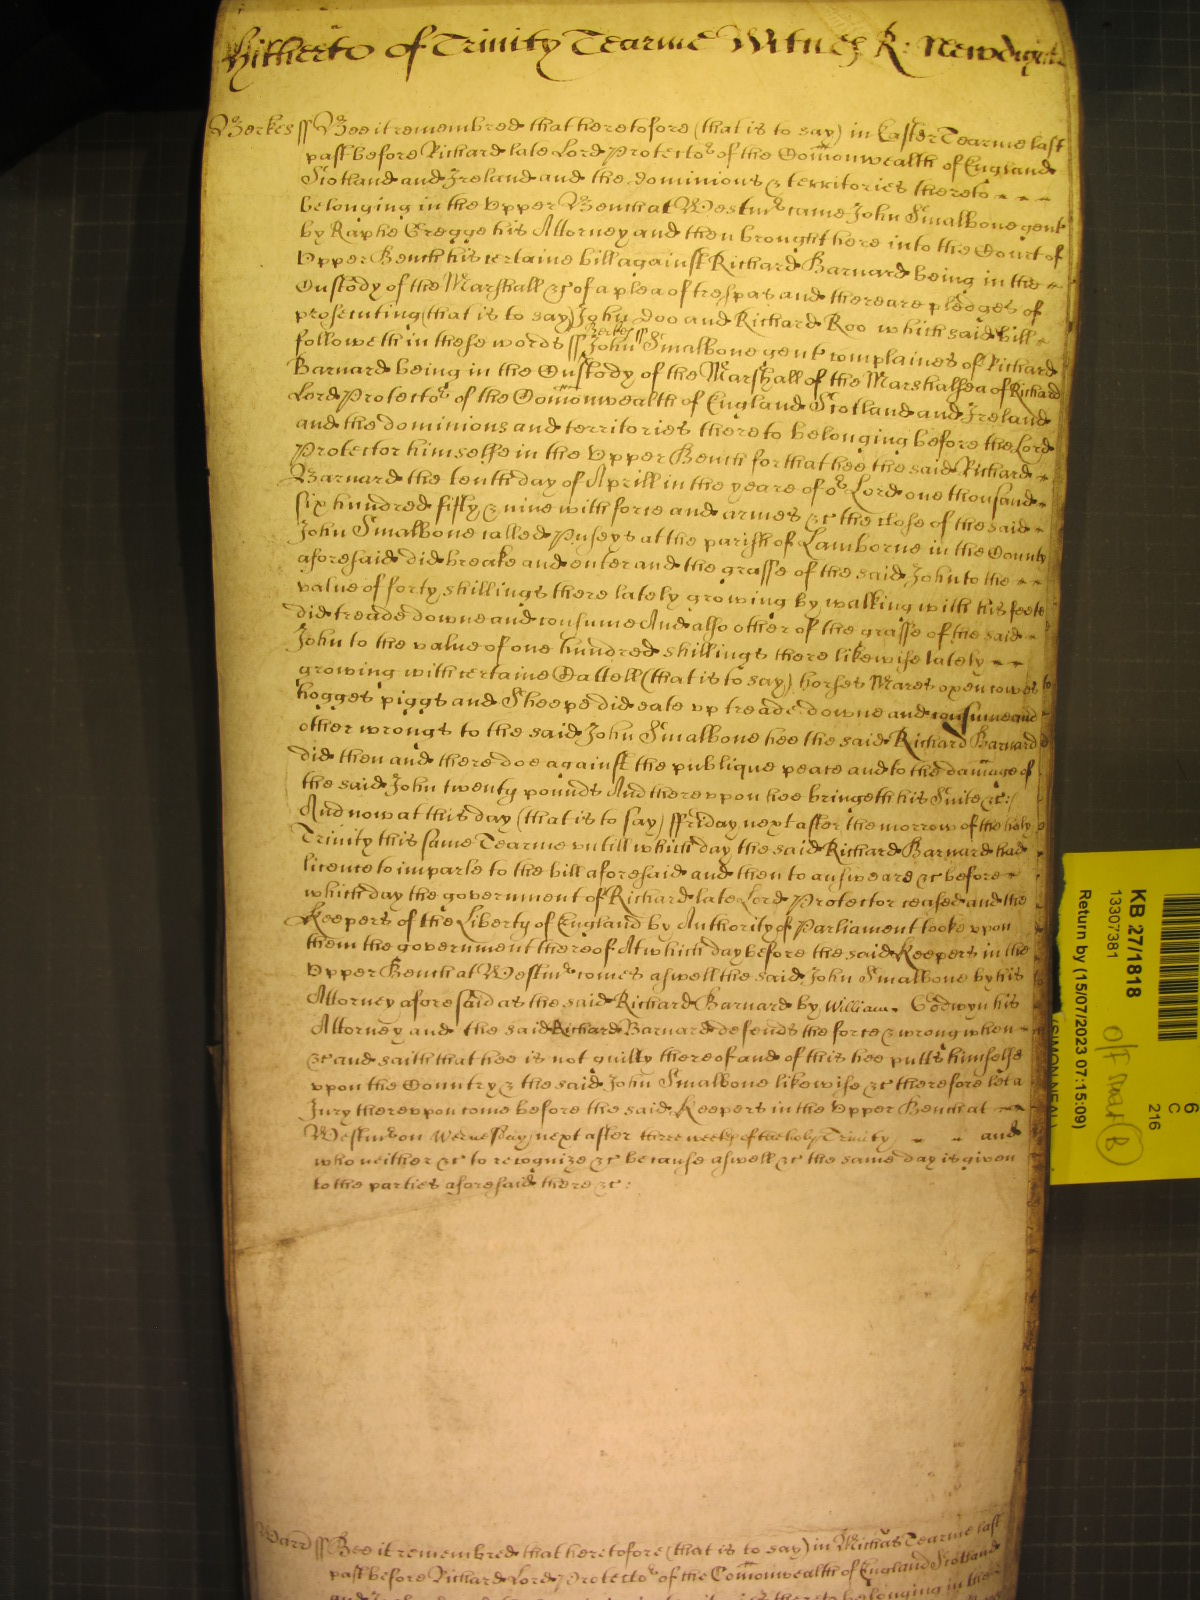 Hitherto of Trinity Tearme Witnes R: Newdigate
Berkes ss Bee it remembred that heretofore (that is to say) in Easter Tearme last
past before Richard late Lord Protector of the Comonwealth of England
Scotland and Ireland and the dominions & territories thereto
belonging in the Vpper Bench at Westmr came John Smalbone gent
by Raphe Gregge his Attorney and then brought here into the Court of
Vpper Bench his certaine bill against Richard Barnard being in the
Custody of the Marshall &c of a plea of trespas and there are pledges of
prosecuting (that is to say) John Doo and Richard Roo which said bill
followeth in these words ss Berkes ss John Smalbone gent complaines of Richard
Barnard being in the Custody of the Marshall of the Marshalsea of Richard
Lord Protector of the Comonwealth of England Scotland and Ireland
and the dominions and territories thereto belonging before the Lord
Protector himselfe in the Vpper Bench for that hee the said Richard
Barnard the tenth day of Aprill in the yeare of or Lord one thousand
six hundred fifty & nine with force and armes &c the close of the said
John Smalbone called Puseys at the parish of Lamborne in the County
aforesaid did breake and enter and the grasse of the said John to the
value of forty shillings there lately growing by walking with his feete
did treade downe and consume And also other of the grasse of the said
John to the value of one hundred shillings there likewise lately
growing with certaine Cattell (that is to say) horses Mares oxen cowes
hogges piggs and Sheepe did eate vp treade downe and consume and
other wrongs to the said John Smalbone hee the said Richard Barnard
did then and there doe against the publique peace and to the damage of
the said John twenty pounds And therevpon hee bringeth his Suite &c:/
And now at this day (that is to say) ffriday next after the morrow of the holy
Trinity this same Tearme vntill which day the said Richard Barnard had
licence to imparle to the bill aforesaid and then to answeare &c before
which day the government of Richard late Lord Protector ceased and the
Keepers of the Liberty of England by Authority of Parliament tooke vpon
them the government thereof At which day before the said Keepers in the
Vpper Bench at Westmr comes aswell the said John Smalbone by his
Attorney aforesaid as the said Richard Barnard by William Godwyn his
Attorney and the said Richard Barnard defends the force & wrong when
&c and saith that hee is not guilty thereof and of this hee putts himselfe
vpon the Country & the said John Smalbone likewise &c therefore let a
Jury therevpon come before the said Keepers in the Vpper Bench at
Westmr on Wednesday next after three weekes of the holy Trinity and
who neither &c to recognize &c because aswell &c the same day is given
to the parties aforesaid there &c:
Warr ss Bee it remembred that heretofore (that is to say) in Michas Tearme last
past before Richard Lord Protector of the Comonwealth of England Scotland
thereto belonging in the
KB 27/1818
13307381
Return by (15/07/2023 07:15:09)
(SIMON NEAL)
6
C
216
B